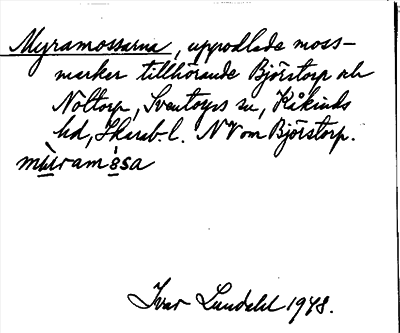 Myramossarna, uppodlade moss-
marker tillhörande Björstorp och
Noltorp, Sventorps sn, Kåkinds
hd, Skarab. l. NV om Björstorp.
mùramósa
Ivar Lundahl 1948.